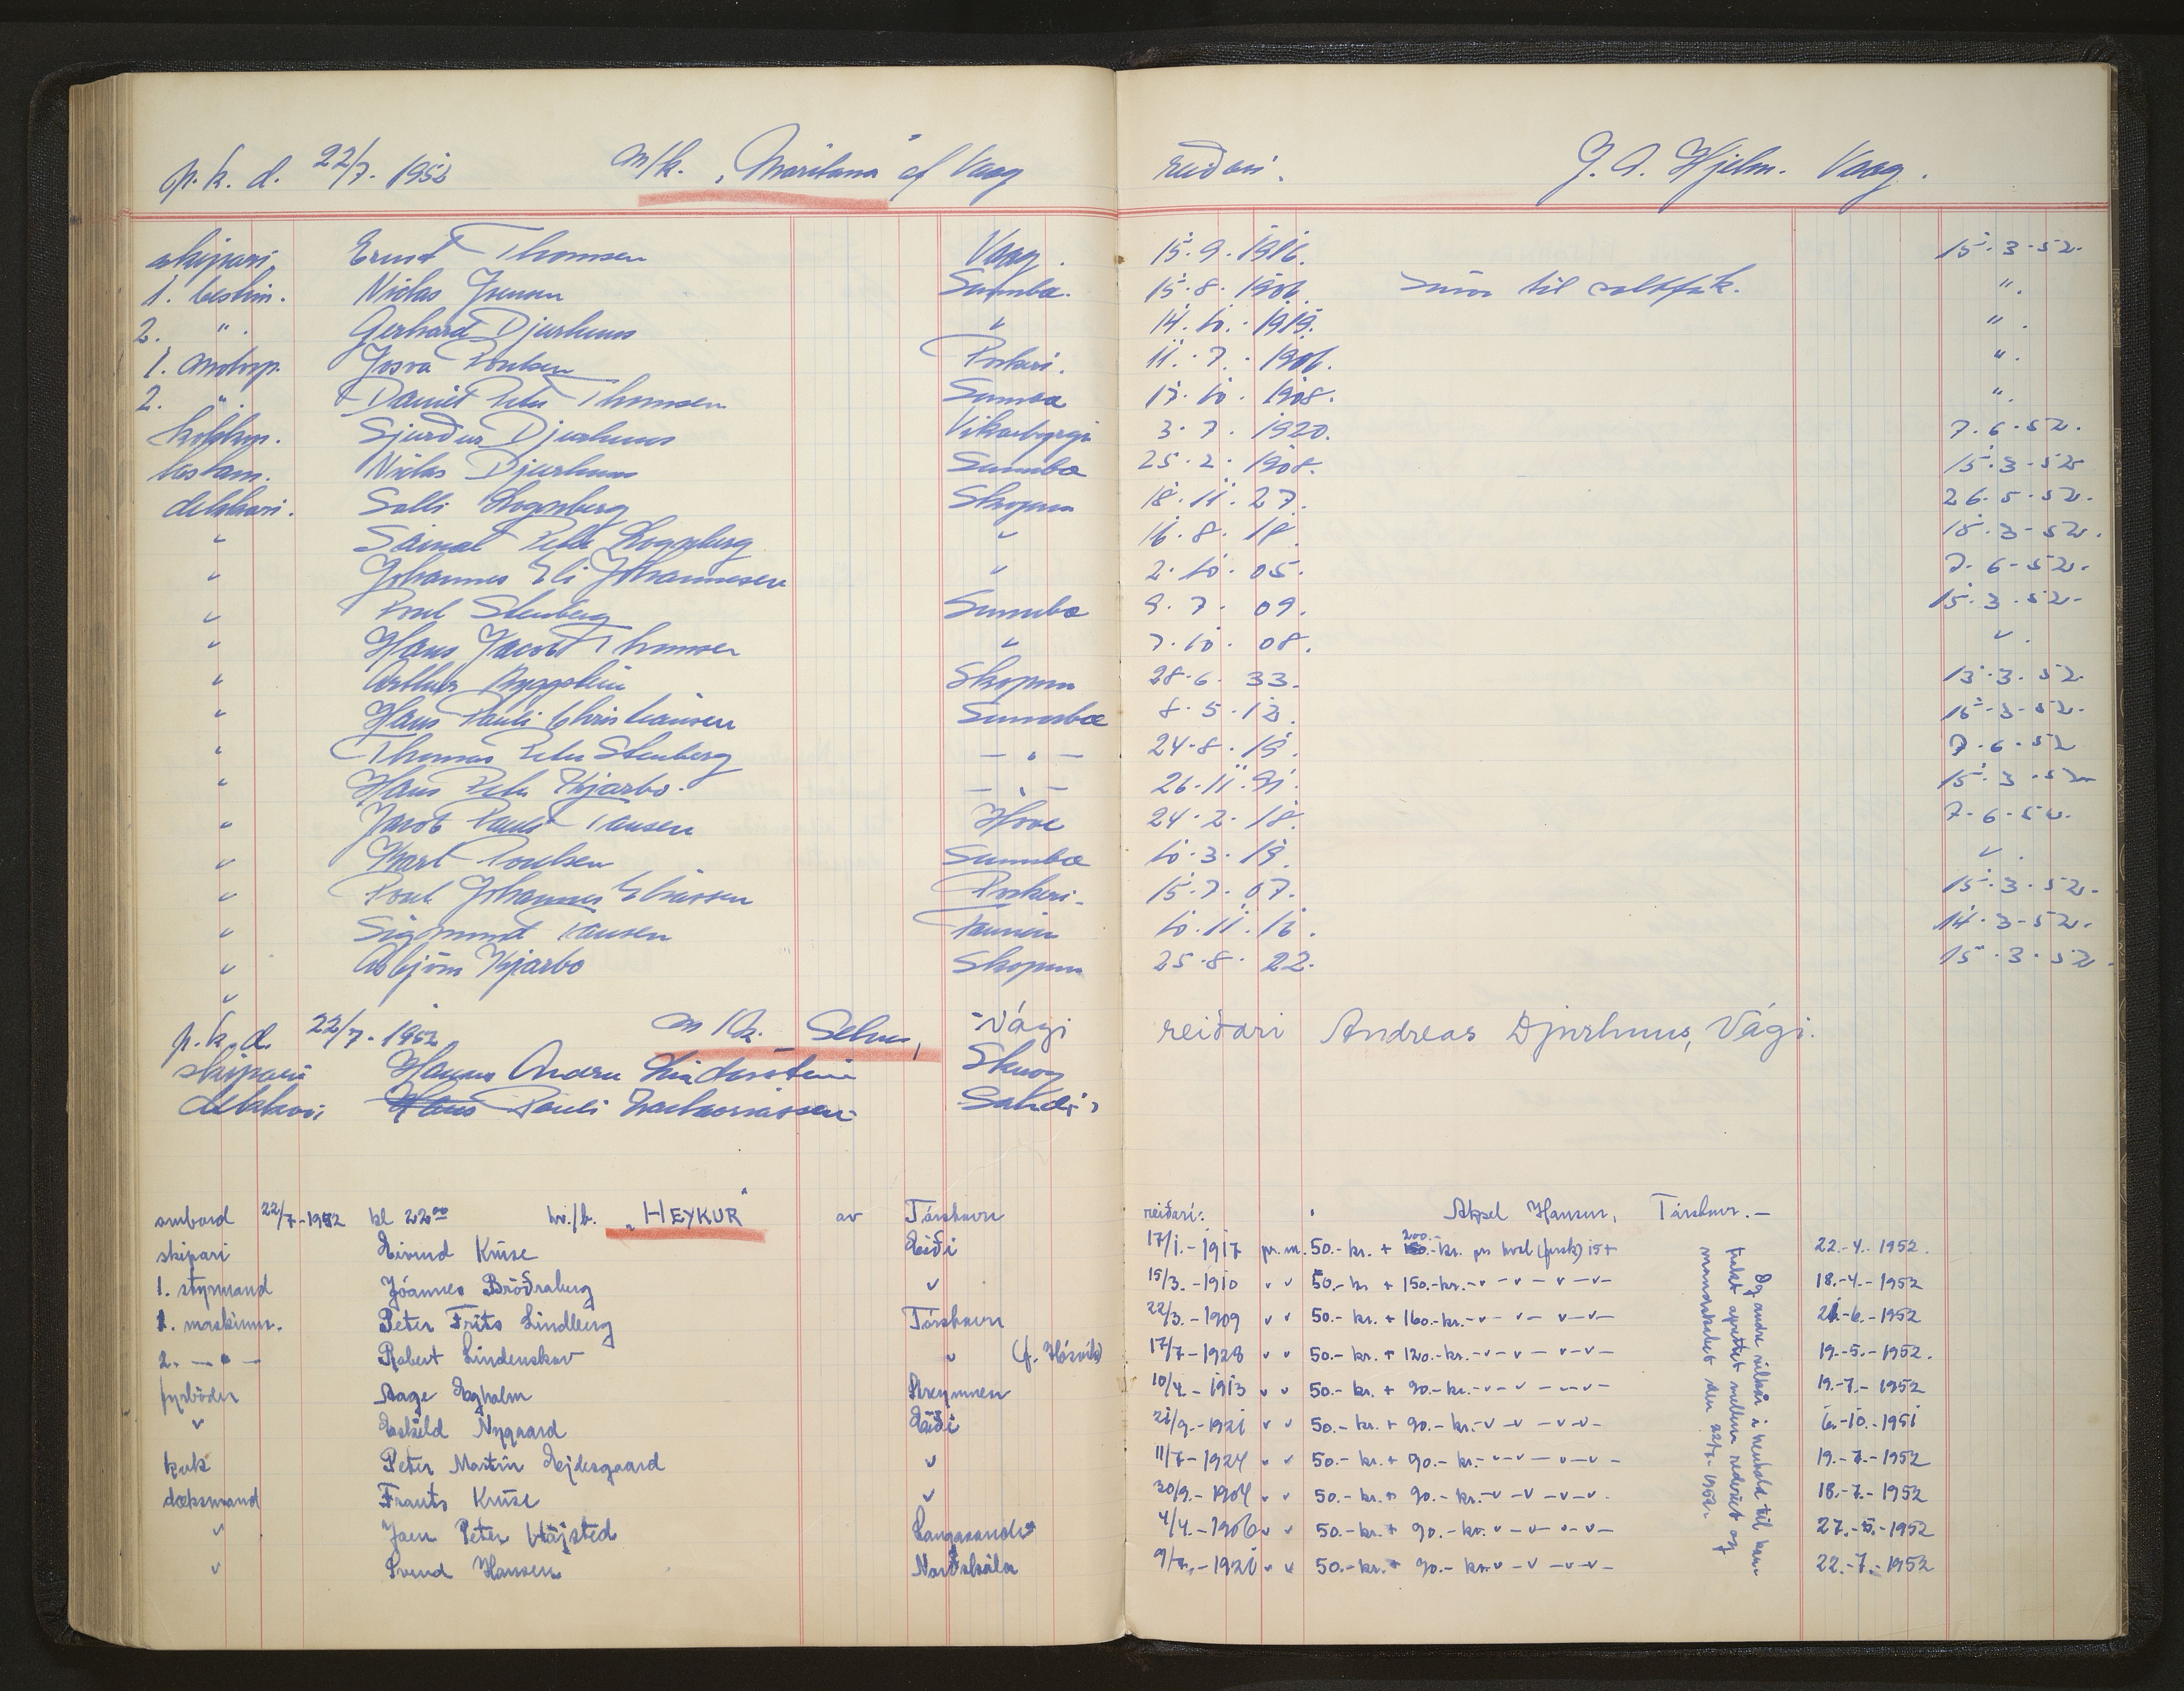 p.k.d. 22/7. 1952 m/k. "Maritana" af Vaag reiðari. J. A. Hjelm. Vaag.
skipari Ernst Thomsen Vaag. 15.9.1916. 15.3-52.
1. bestm. Niclas Joensen Sumba. 15.8.1906. til saltfisk. ".
2. " . Gerhard Djurhuus " 14.10.1919. " .
1. motorp. Josva Poulsen Porkeri. 11.7.1906. ".
2. " . Daniel Peter Thomsen Sumba 17.10.1908. ".
kokkur. Sjurður Djurhuus Vikarbyrgi 3.7.1920. 7.6.52.
Niclas Djurhuus Sumba 25.2.1908. 15.3-52
dekkari. Salli Skopun 18.11.27. 26.5.52.
" Peter " 16.8.18. 15.3-52.
" Johannes Eli Johannesen " 2.10.05. 7.6-52.
" Poul Stenberg Sumba 9.7.09. 15.3.52.
" Hans Jacob Thomsen " 7.10.08. ".
" Skopun 28.6.33. 13.3.52
" Hans Pauli Christiansen Sumba 8.5.13. 15.3-52.
" Thomas Peter Stenberg — " — 24.8.19. 7.6.52
" Hans Peter Kjærbo. — " — 26.11.91. 15.3.52
" Jacob Pauli Hansen Hove 24.2.18. 7.6.52.
" Karl Poulsen Sumba 10.3.19. ".
" Poul Johannes Eliassen Porkeri- 15.7.07. 15.3.52.
" Sigmund Hansen 10.11.16. 14.3-52.
" Asbjörn Kjærbo Skopun 25.8.22. 15.3.52.
"
p.k.d. 22/7. 1952 m/k. -Vági reiðari Andreas Djurhuus, Vági.
skipari Hanus Andrew Skuog
dekkari Hans Pauli Zachariassen Sandi
ombord 22/7-1952 kl 22⁰⁰ hv./b. "HEYKUR" av Tórshavn reiðari: Aksel Hansen, Tórshavn.—
skipari Eivind Kruse Eiði 17/1.-1917 pr. m. 50.- kr. + 200.- 150.- kr. pr hval (fisk) 15+ 22.-4.-1952.
1. styrmand Jóannes Bröðraberg " 15/3.-1910 " " 50.- kr + 150.-kr.-"-"-"-"- 18.-4.-1952
1. maskinm. Peter Frits Lindberg Tórshavn 22/3.-1909 " " 50.- kr. + 160.-kr.-"-"-"-"- 21.-6.-1952
2. —"— Robert Lindenskov " (f. Hósvík) 17/7-1928 " " 50.- kr. + 120.-kr.-"-"-"-"- 19.-5.-1952.
fyrböder Aage Egholm Streymnes 10/4.-1913 " " 50.- kr. + 90.-kr.-"-"-"-"- 19.-7.-1952
" Eskild Nygaard Eiði 21/9.-1921 " " 50.- kr. + 90.- kr.-"-"-"-"- 6.-10.-1951
kok Peter Martin Ejdesgaard " 11/7-1924 " " 50.- kr. + 90.- kr.-"-"-"-"- 19.-7.-1952
dæksmand Frants Kruse " 30/9.-1904 " " 50.- kr. + 90.- kr.-"-"-"-"- 18.-7.-1952
" Joen Peter Højsted Langasandi 4/4.-1906 " " 50.- kr. + 90.- kr. "-"-"-"- 27.-5.-1952
" Svend Hansen Norðskála 9/7.-1921 " " 50.- kr. + 90.- kr. "-"-"-"- 22.-7.-1952
Og andre vilkår i henhold til kon-
trakt oprettet mellem rederiet og
mandskabet den 22/7-1952.